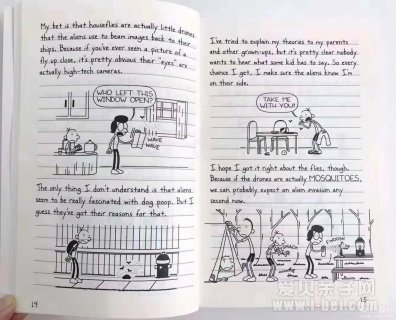 My bet is that houseflies are actually little drones
that the aliens use to beam images back to their
ships. Because if you've ever seen a picture of a
fly up close, it's pretty obvious their "eyes" are
actually high-tech cameras.
WHO LEFT THIS
WINDOW OPEN?
WAVE
WAVE
The only thing I don't understand is that aliens
seem to be really fascinated with dog poop. But I
guess they've got their reasons for that.
14
I've tried to explain my theories to my parents
and other grown-ups, but it's pretty clear nobody
wants to hear what some kid has to say. So every
chance I get, I make sure the aliens know I'm
on their side.
TAKE ME
WITH YOU!
I hope I got it right about the flies, though.
Because if the drones are actually MOSQUITOES,
we can probably expect an alien invasion any
second now.
SMACK
FWOOM
15
爱儿亲子网
www.i-bei.com